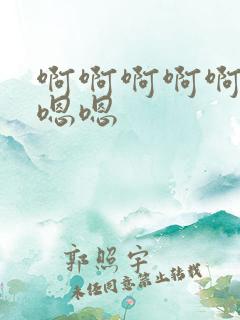 啊啊啊啊啊
嗯嗯
郭照宇
未经同意禁止转载